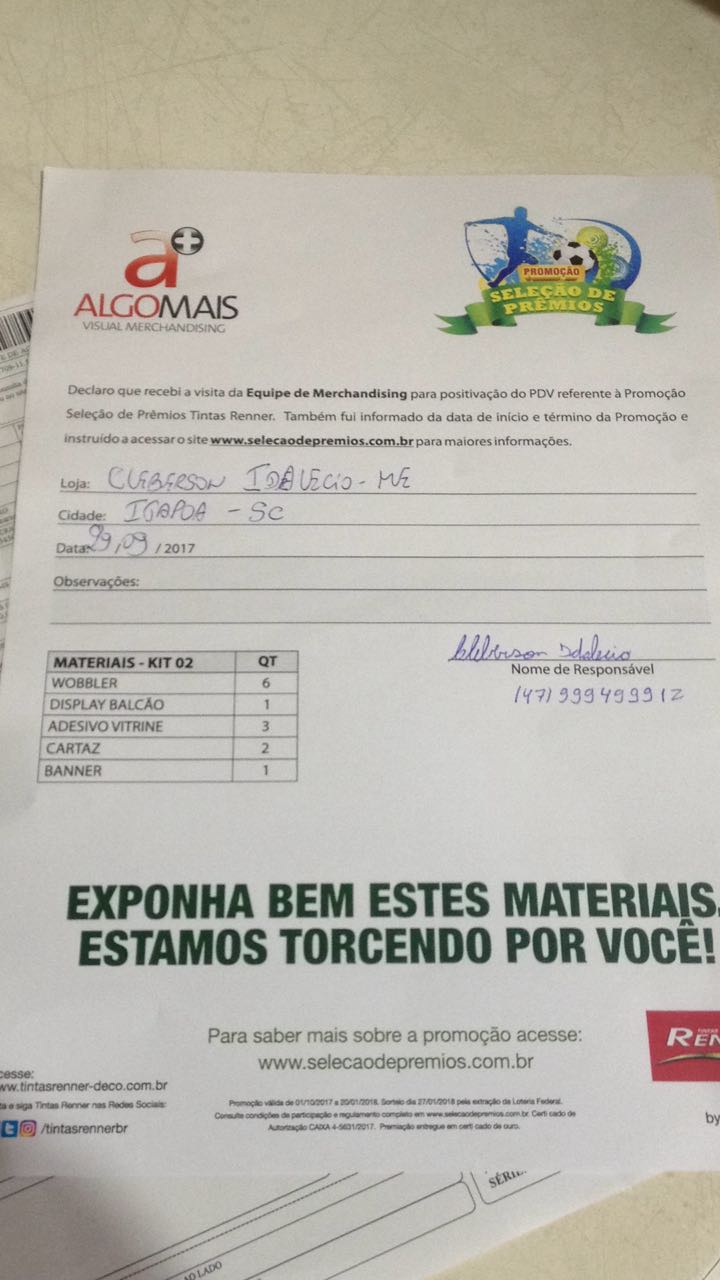 a+
ALGOMAIS
VISUAL MERCHANDISING
PROMOÇÃO
SELEÇÃO DE
PRÊMIOS
Declaro que recebi a visita da Equipe de Merchandising para positivação do PDV referente à Promoção
Seleção de Prêmios Tintas Renner. Também fui informado da data de início e término da Promoção e
instruído a acessar o site www.selecaodepremios.com.br para maiores informações.
Loja: CLEBERSON IDALECIO - ME
Cidade: ITAPOA - SC
Data: 29,09 / 2017
Observações:
MATERIAIS - KIT 02 QT
WOBBLER 6
DISPLAY BALCÃO 1
ADESIVO VITRINE 3
CARTAZ 2
BANNER 1
Kleberson Idalecio
Nome de Responsável
(47) 999499912
EXPONHA BEM ESTES MATERIAIS.
ESTAMOS TORCENDO POR VOCÊ!
Para saber mais sobre a promoção acesse:
www.selecaodepremios.com.br
TINTAS
REN
cesse:
ww.tintasrenner-deco.com.br
ta e siga Tintas Renner nas Redes Sociais:
/tintasrennerbr
Promoção válida de 01/10/2017 a 20/01/2018. Sorteio dia 27/01/2018 pela extração da Loteria Federal.
Consulte condições de participação e regulamento completo em www.selecaodepremios.com.br. Certi cado de
Autorização CAIXA 4-5631/2017. Premiação entregue em certi cado de ouro.
by
SÉRIE
AO LADO